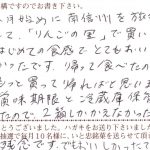 構ですのでお書き下さい。
月始めに南信州を旅
て、「りんごの里」で買い
はじめての食感でとてもおい
かったです。帰って食べたの
もっと買って帰ればと思いま
賞味期限と冷蔵庫保存
たので、2箱しかえなかった
とうございました。ハガキをお送り下さいました
抽選で毎月10名様に、いと忠銘菓を送らせて頂
残念です。でもおいしかった